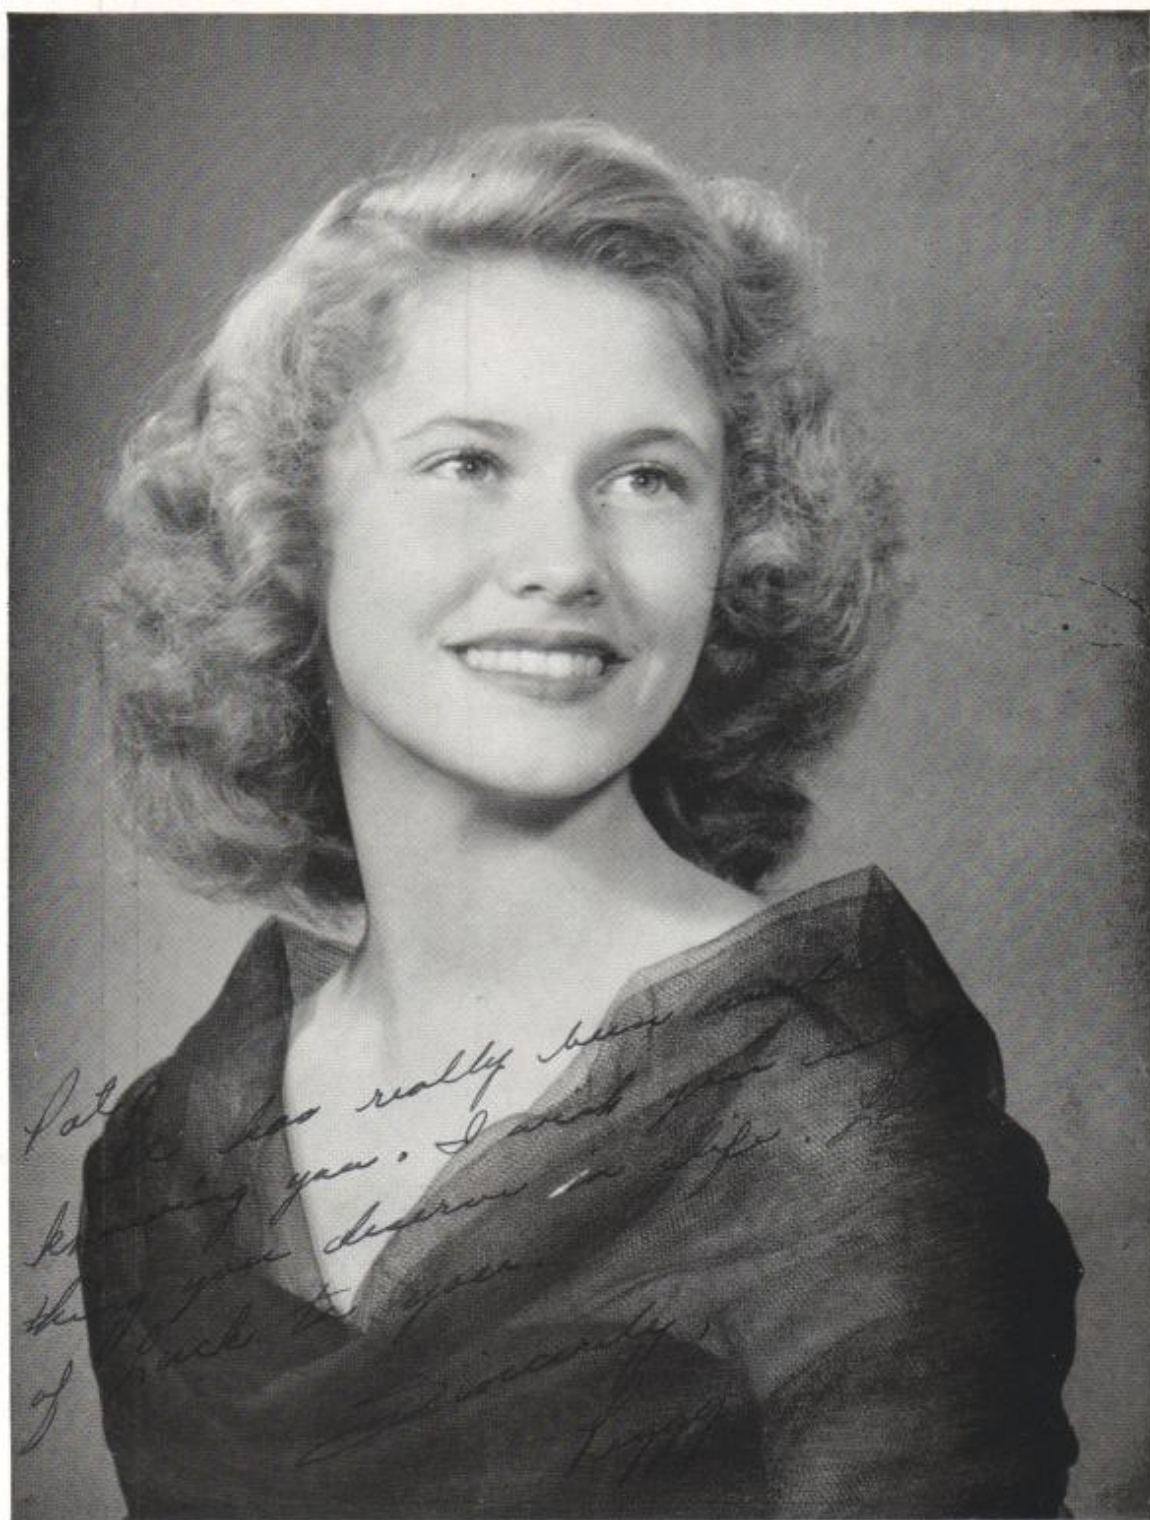 Pat,
It has really been
knowing you. I wish you every
thing you deserve in life. Lots
of luck to you.
Sincerely,